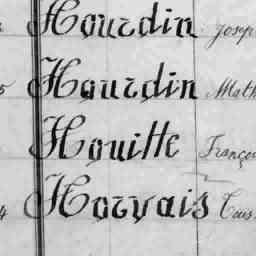 Hourdin Josep
5 Hourdin Math
Houitte Françoi
4 Horvais